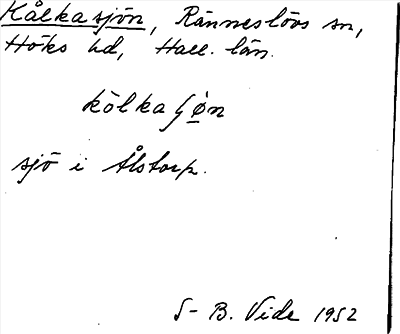 Kålkasjön, Ränneslövs sn,
Höks hd, Hall. län.
kòlkaʃø̀n
sjö i Ålstorp.
S-B. Vide 1952